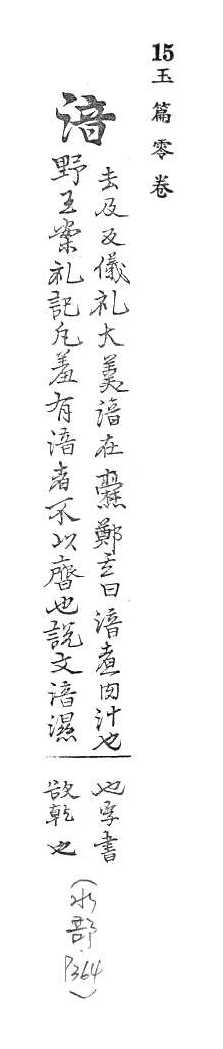 15玉篇零卷
湆
去及反儀礼大羮湆在爨鄭玄曰湆煮肉汁也
野王案礼記凡羞有湆者不以齊也說文湆濕
也字書
欲乾也
(水部 P364)